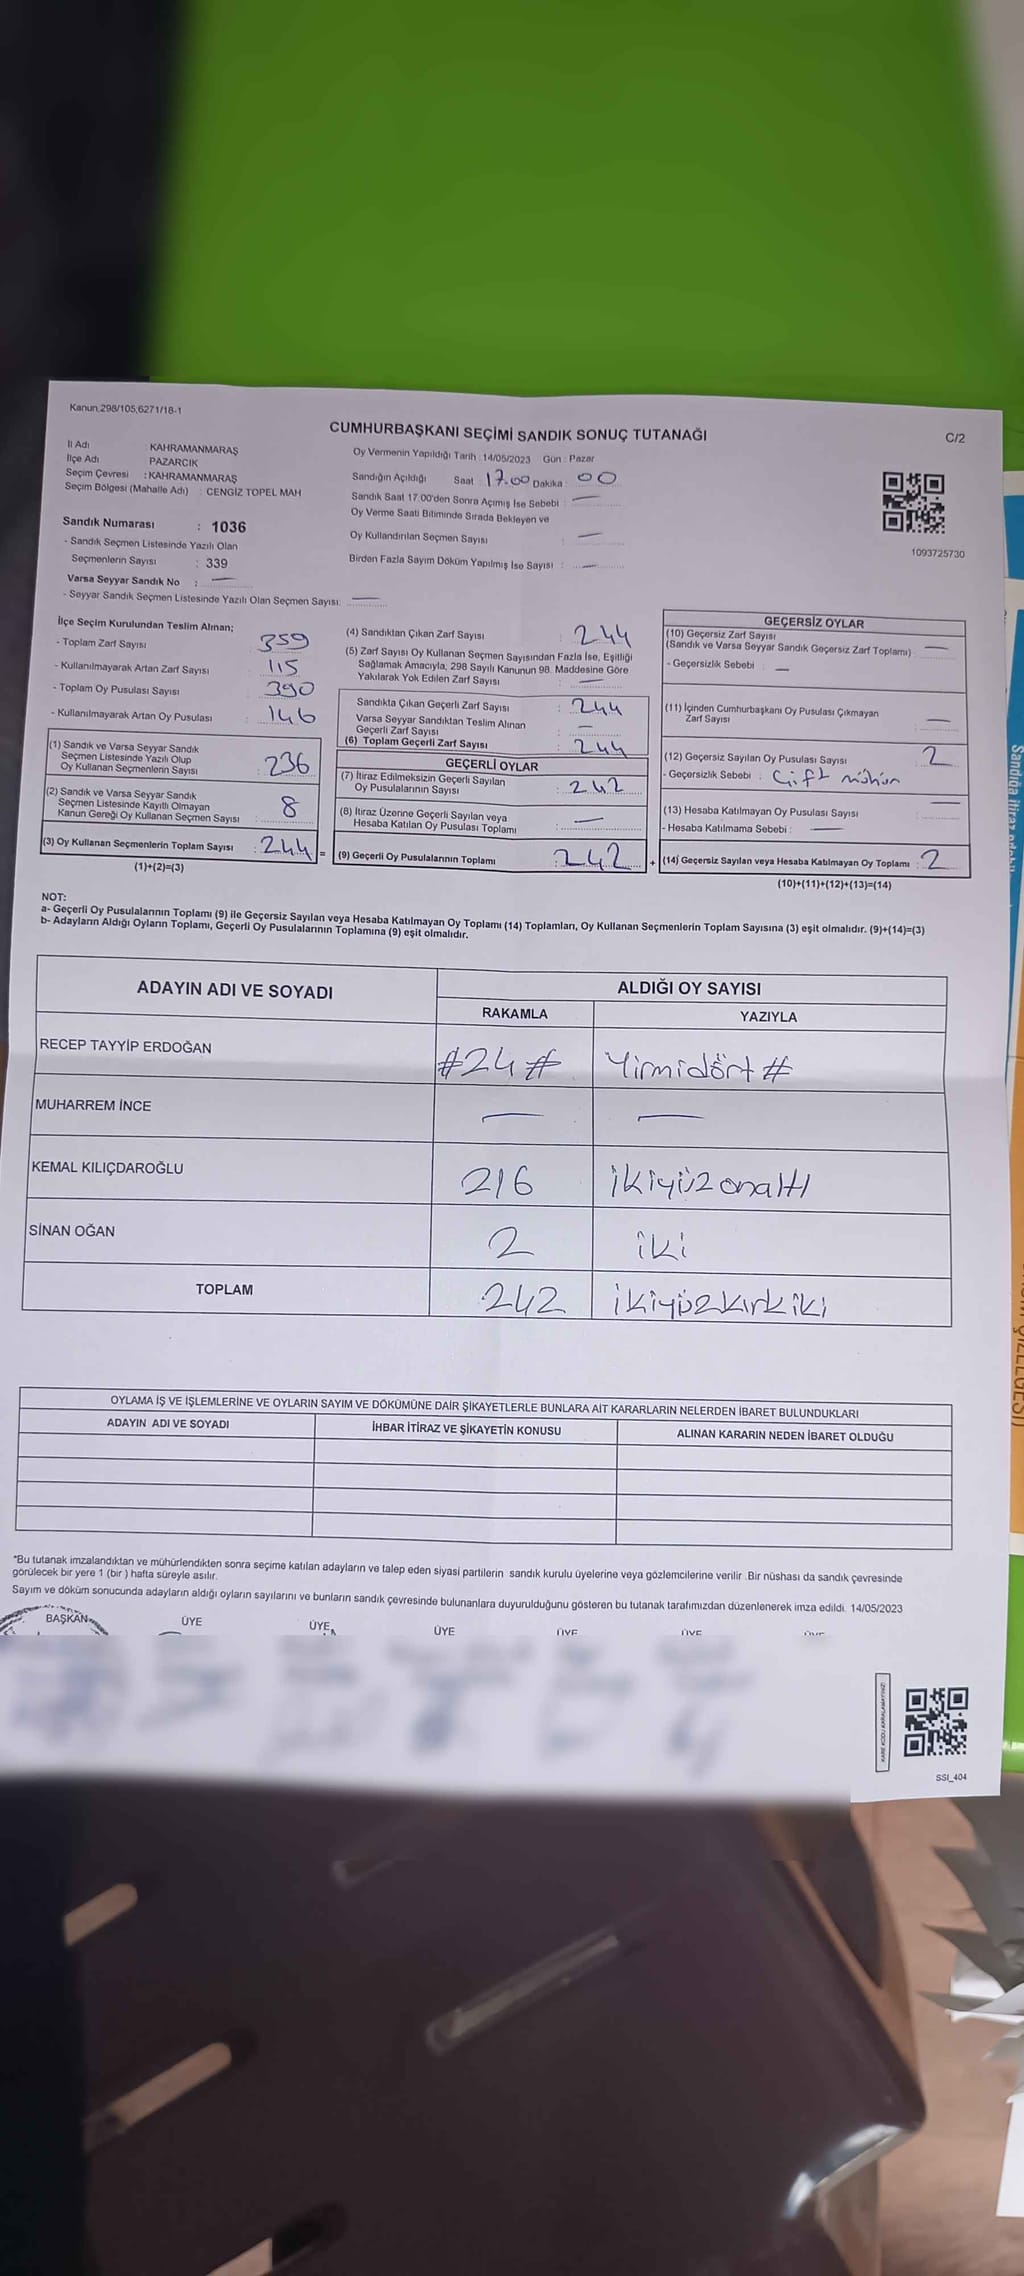 Kanun.298/105,6271/18-1
CUMHURBAŞKANI SEÇİMİ SANDIK SONUÇ TUTANAĞI
C/2
İl Adı : KAHRAMANMARAŞ
İlçe Adı : PAZARCIK
Seçim Çevresi : KAHRAMANMARAŞ
Seçim Bölgesi (Mahalle Adı) : CENGİZ TOPEL MAH
Sandık Numarası : 1036
- Sandık Seçmen Listesinde Yazılı Olan
Seçmenlerin Sayısı : 339
Varsa Seyyar Sandık No : —
- Seyyar Sandık Seçmen Listesinde Yazılı Olan Seçmen Sayısı: —
Oy Vermenin Yapıldığı Tarih : 14/05/2023 Gün : Pazar
Sandığın Açıldığı Saat : 17.00 Dakika : 00
Sandık Saat 17.00'den Sonra Açımış İse Sebebi : —
Oy Verme Saati Bitiminde Sırada Bekleyen ve
Oy Kullandırılan Seçmen Sayısı : —
Birden Fazla Sayım Döküm Yapılmış İse Sayısı : —
1093725730
İlçe Seçim Kurulundan Teslim Alınan;
- Toplam Zarf Sayısı : 359
- Kullanılmayarak Artan Zarf Sayısı : 115
- Toplam Oy Pusulası Sayısı : 390
- Kullanılmayarak Artan Oy Pusulası : 146
(1) Sandık ve Varsa Seyyar Sandık
Seçmen Listesinde Yazılı Olup
Oy Kullanan Seçmenlerin Sayısı : 236
(2) Sandık ve Varsa Seyyar Sandık
Seçmen Listesinde Kayıtlı Olmayan
Kanun Gereği Oy Kullanan Seçmen Sayısı : 8
(3) Oy Kullanan Seçmenlerin Toplam Sayısı : 244 =
(1)+(2)=(3)
(4) Sandıktan Çıkan Zarf Sayısı : 244
(5) Zarf Sayısı Oy Kullanan Seçmen Sayısından Fazla İse, Eşitliği
Sağlamak Amacıyla, 298 Sayılı Kanunun 98. Maddesine Göre
Yakılarak Yok Edilen Zarf Sayısı : —
Sandıkta Çıkan Geçerli Zarf Sayısı : 244
Varsa Seyyar Sandıktan Teslim Alınan
Geçerli Zarf Sayısı : —
(6) Toplam Geçerli Zarf Sayısı : 244
GEÇERLİ OYLAR
(7) İtiraz Edilmeksizin Geçerli Sayılan
Oy Pusulalarının Sayısı : 242
(8) İtiraz Üzerine Geçerli Sayılan veya
Hesaba Katılan Oy Pusulası Toplamı : —
(9) Geçerli Oy Pusulalarının Toplamı : 242 +
GEÇERSİZ OYLAR
(10) Geçersiz Zarf Sayısı
(Sandık ve Varsa Seyyar Sandık Geçersiz Zarf Toplamı) : —
- Geçersizlik Sebebi : —
(11) İçinden Cumhurbaşkanı Oy Pusulası Çıkmayan
Zarf Sayısı : —
(12) Geçersiz Sayılan Oy Pusulası Sayısı : 2
- Geçersizlik Sebebi : Çift mühür
(13) Hesaba Katılmayan Oy Pusulası Sayısı : —
- Hesaba Katılmama Sebebi : —
(14) Geçersiz Sayılan veya Hesaba Katılmayan Oy Toplamı : 2
(10)+(11)+(12)+(13)=(14)
NOT:
a- Geçerli Oy Pusulalarının Toplamı (9) ile Geçersiz Sayılan veya Hesaba Katılmayan Oy Toplamı (14) Toplamları, Oy Kullanan Seçmenlerin Toplam Sayısına (3) eşit olmalıdır. (9)+(14)=(3)
b- Adayların Aldığı Oyların Toplamı, Geçerli Oy Pusulalarının Toplamına (9) eşit olmalıdır.
ADAYIN ADI VE SOYADI ALDIĞI OY SAYISI
RAKAMLA YAZIYLA
RECEP TAYYİP ERDOĞAN #24# Yirmidört #
MUHARREM İNCE — —
KEMAL KILIÇDAROĞLU 216 ikiyüzonaltı
SİNAN OĞAN 2 iki
TOPLAM 242 ikiyüzkırkiki
OYLAMA İŞ VE İŞLEMLERİNE VE OYLARIN SAYIM VE DÖKÜMÜNE DAİR ŞİKAYETLERLE BUNLARA AİT KARARLARIN NELERDEN İBARET BULUNDUKLARI
ADAYIN ADI VE SOYADI İHBAR İTİRAZ VE ŞİKAYETİN KONUSU ALINAN KARARIN NEDEN İBARET OLDUĞU
*Bu tutanak imzalandıktan ve mühürlendikten sonra seçime katılan adayların ve talep eden siyasi partilerin sandık kurulu üyelerine veya gözlemcilerine verilir .Bir nüshası da sandık çevresinde
görülecek bir yere 1 (bir ) hafta süreyle asılır.
Sayım ve döküm sonucunda adayların aldığı oyların sayılarını ve bunların sandık çevresinde bulunanlara duyurulduğunu gösteren bu tutanak tarafımızdan düzenlenerek imza edildi. 14/05/2023
BAŞKAN ÜYE ÜYE ÜYE ÜYE ÜYE ÜYE
SSI_404